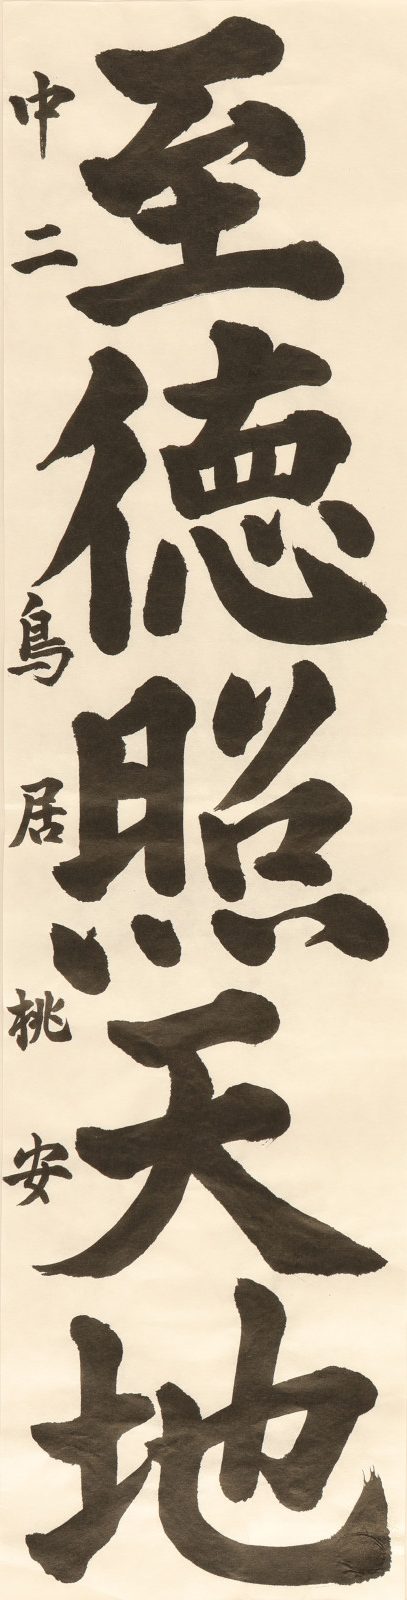 至徳照天地
中二 鳥居桃安